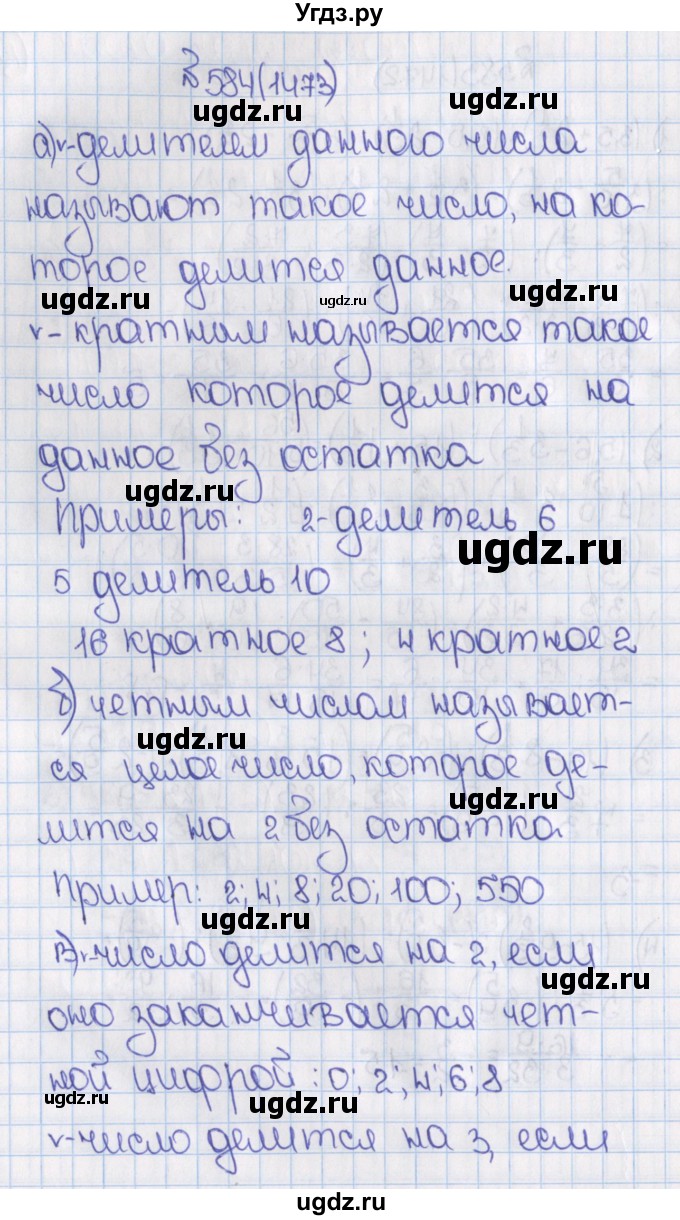 Угдз.ру
№584(1473)
ugdz.ru
а)v-делителем данного числа
называют такое число, на ко-
торое делится данное.
ugdz.ru ugdz.ru ugdz.ru
v-кратным называется такое
число которое делится на
данное без остатка
ugdz.ru
Примеры: 2-делитель 6
ugdz.ru
5 делитель 10
16 кратное 8; 4 кратное 2
б) четным числом называет-
ugdz.ru
ся целое число, которое де-
ugdz.ru
лится на 2 без остатка
Пример: 2; 4; 8; 20; 100; 550
ugdz.ru
в)v-число делится на 2, если
ugdz.ru
оно заканчивается чет-
ной цифрой: 0; 2; 4; 6; 8
ugdz.ru ugdz.ru
v-число делится на 3, если
ugdz.ru